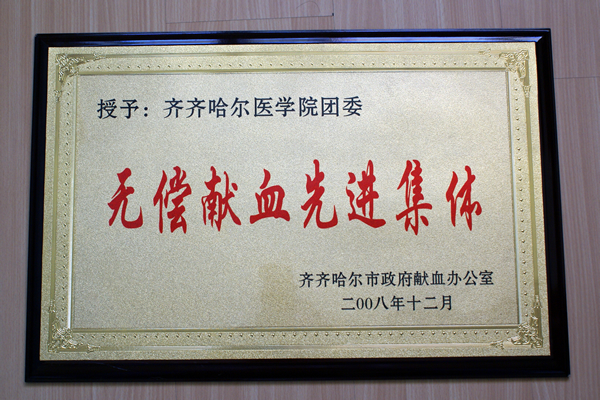 授予：齐齐哈尔医学院团委
无偿献血先进集体
齐齐哈尔市政府献血办公室
二00八年十二月